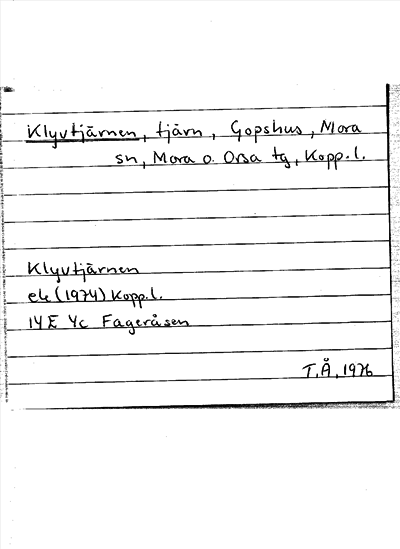 Klyvtjärnen, tjärn, Gopshus, Mora
sn, Mora o. Orsa tg, Kopp. l.
Klyvtjärnen
ek (1974) Kopp. l.
14E 4c Fageråsen
T.Å. 1976